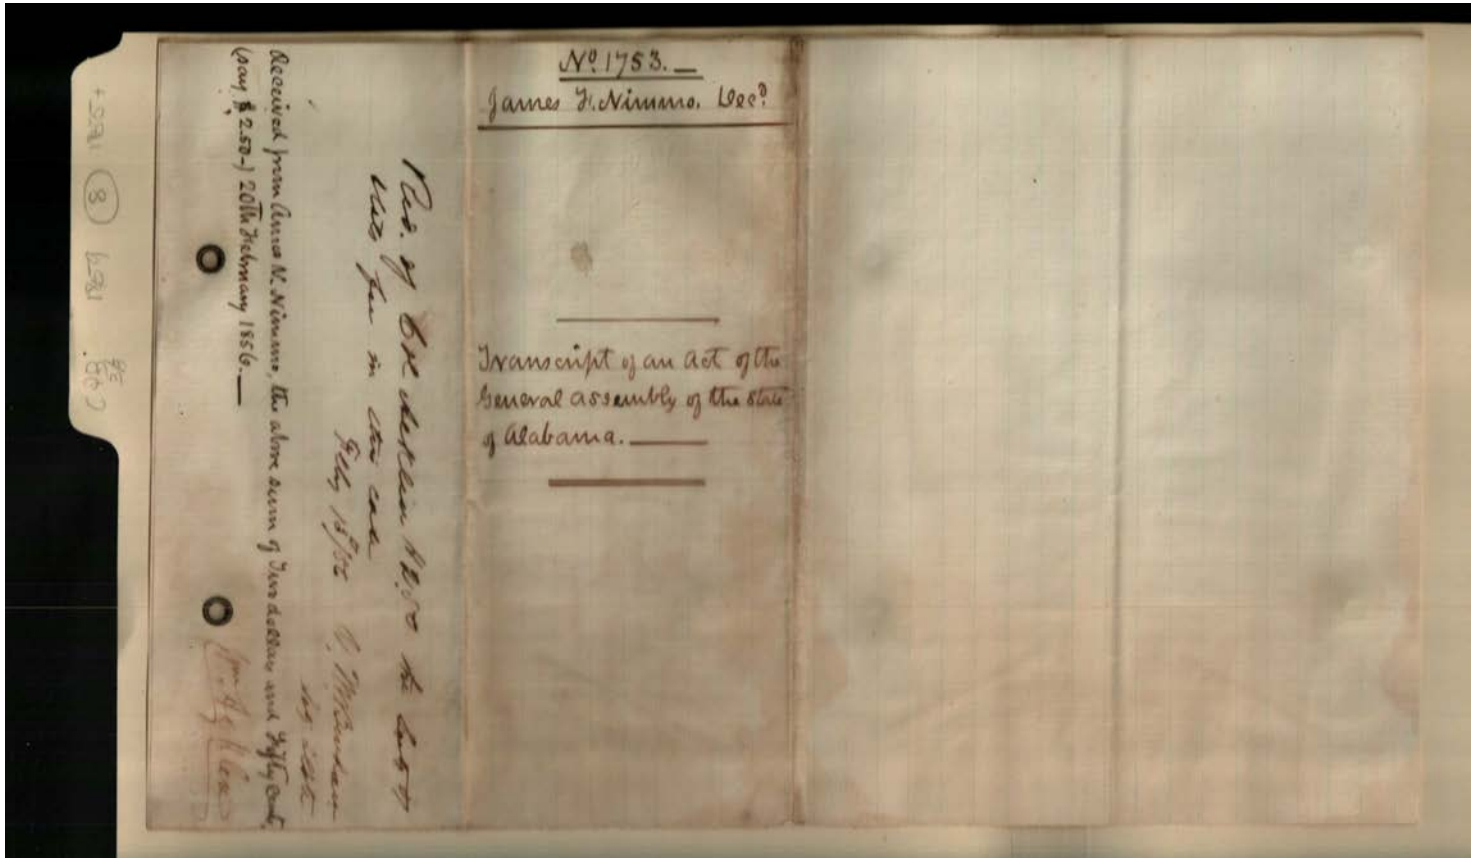 Nº. 1753.
James F. Nimmo. Decd.
Transcript of an Act of the
General Assembly of the State
of Alabama.
Recd. of Col $2.50 the Secty of
State fee in this case
Feby
Secy State
Received from Anna N. Nimmo, the above sum of Two dollars and Fifty Cents.
(say $2.50-) 20th February 1856.